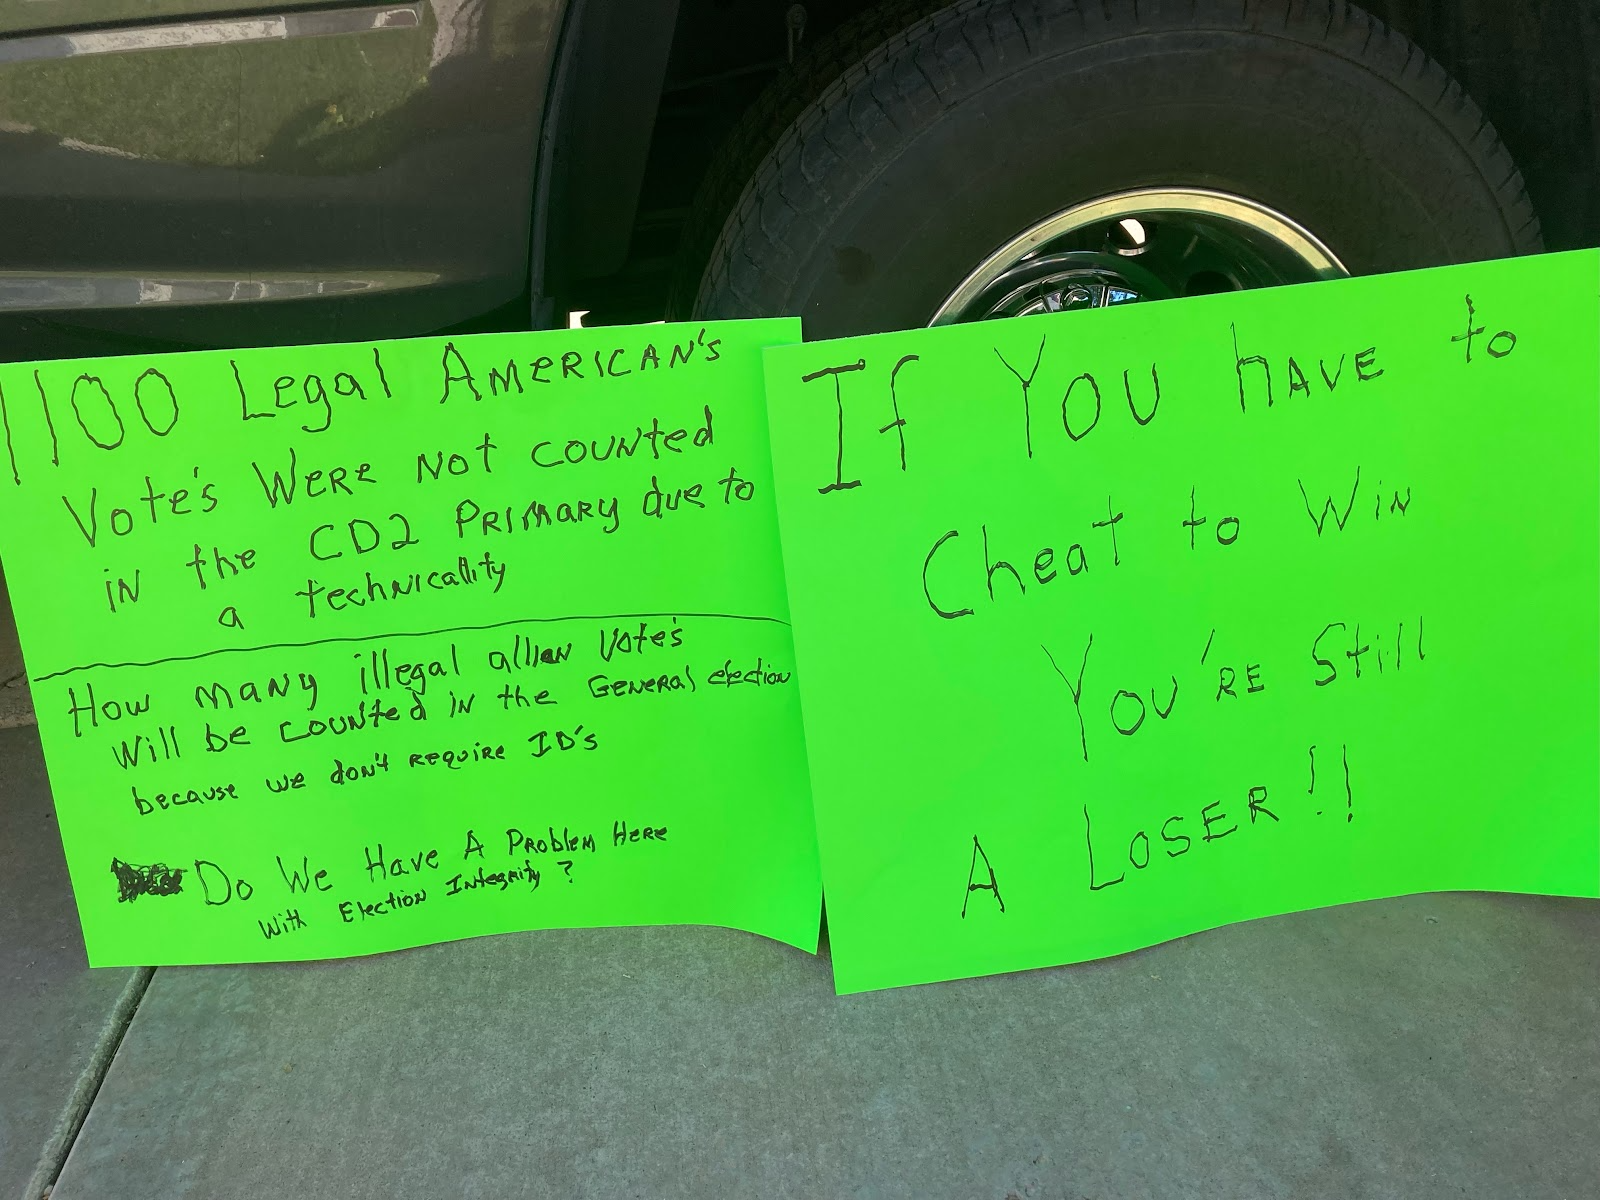 1100 Legal American's
Vote's Were not counted
in the CD2 Primary due to
a technicallity
How many illegal allien Vote's
Will be counted in the General election
because we don't require ID's
Do We Have A Problem Here
With Election Integrity?
If You have to
Cheat to Win
You're Still
A Loser!!